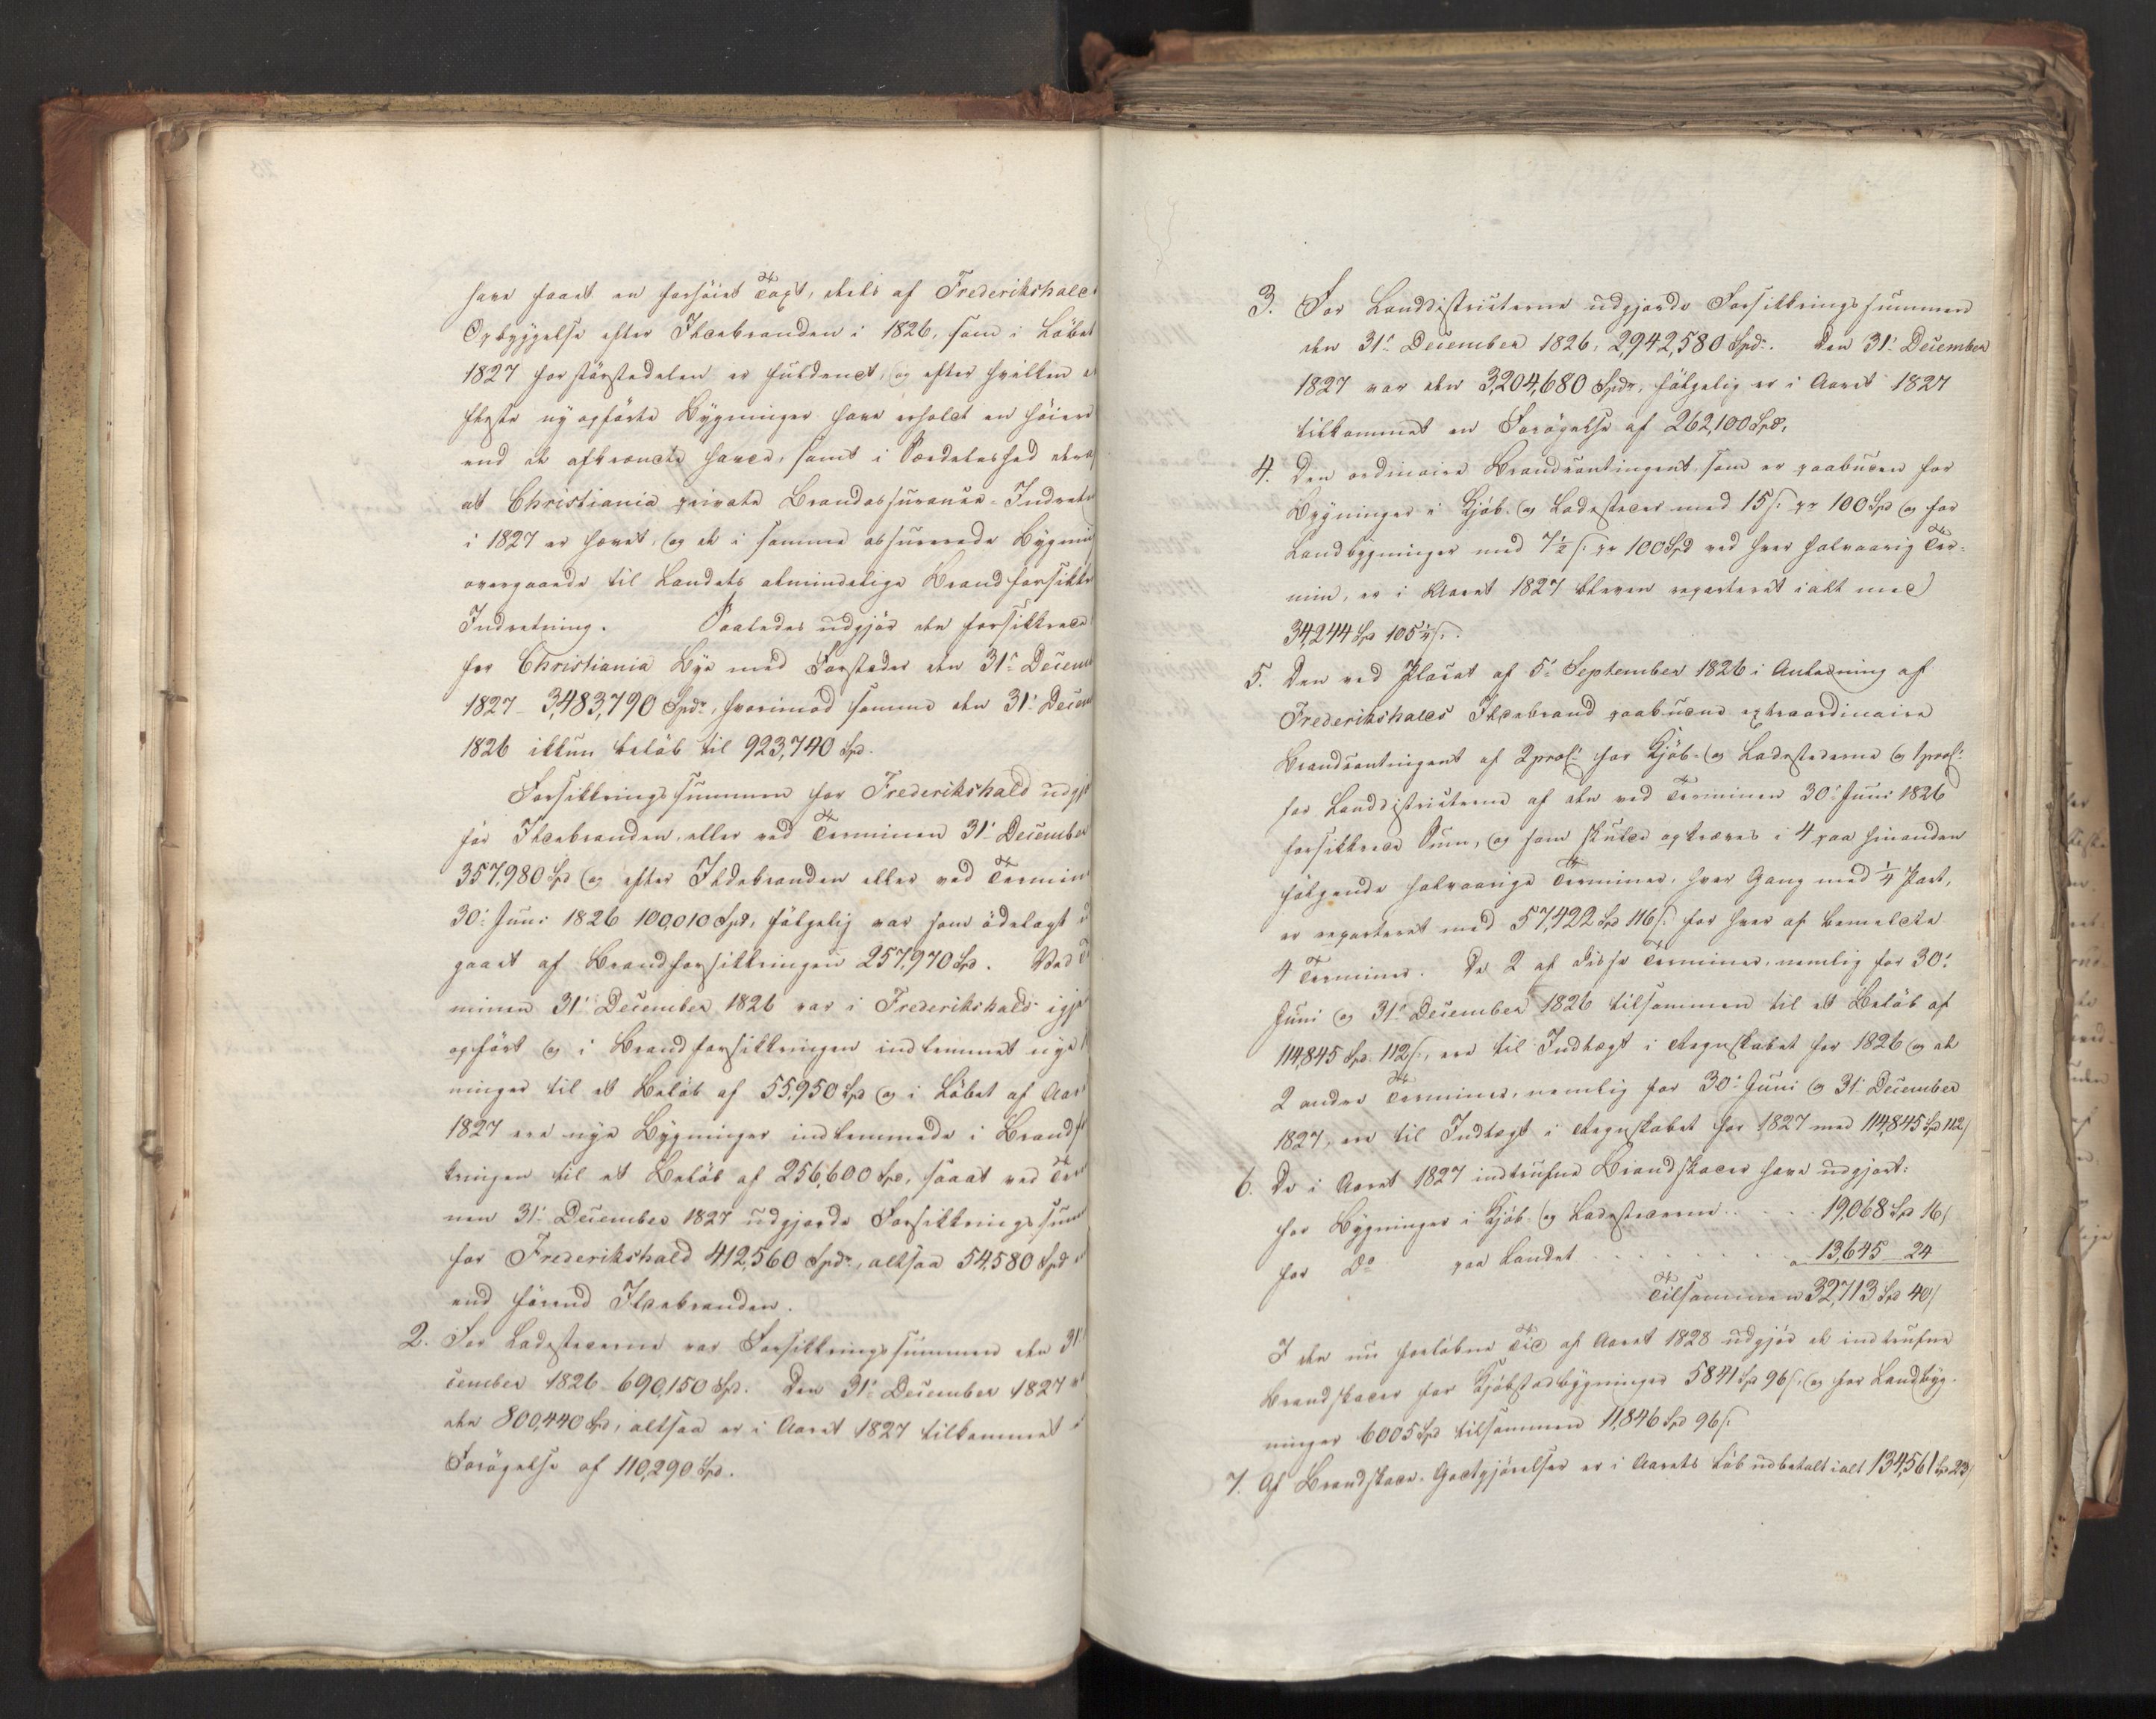 have faaet en forhöiet Taxt, deels af Frederikshalds
Opbyggelse efter Ildebranden i 1826, som i Löbet
1827 for störstedelen er fuldendt, og efter hvilken de
fleste ny opförte Bygninger have erholdt en höiere
end de afbrændte havde, samt i Særdeleshed deraf
at Christiania private Brandassurance-Indretn
i 1827 er hævet, og de i samme assurerede Bygnin
overgaaede til Landets almindelige Brandforsikkr
Indretning. Saaledes udgjör den forsikkrede
for Christiania Bye med Forstæder den 31te Decemb
1827 - 3,483,790 Spdr, hvorimod samme den 31te Decemb
1826 ikkun belöb til 923,740 Spd.
Forsikkringssummen for Frederikshald udgj
för Ildebranden, eller ved Terminen 31te December
357,980 Spd og efter Ildebranden eller ved Termin
30te Juni 1826 100,010 Spd, fölgelig var som ödelagt u
gaaet af Brandforsikkringen 257,970 Spd. Ved T
minen 31te December 1826 var i Frederikshald igje
opfört og i Brandforsikkringen indlemmet nye
ninger til et Belöb af 55,950 Spd og i Löbet af Aar
1827 ere nye Bygninger indlemmede i Brandf
kringen til et Belöb af 256,600 Spd, saaat ved Ter
nen 31te December 1827 udgjorde Forsikkringssum
for Frederikshald 412,560 Spdr, altsaa 54,580 Spd
end förend Ildebranden.
2. For Ladestederne var Forsikkringssummen den 31te
cember 1826 - 690,150 Spd. Den 31te December 1827 v
den 800,440 Spd, altsaa er i Aaret 1827 tilkommet e
Forögelse af 110,290 Spd.
3. For Landdistricterne udgjorde Forsikkringssummen
den 31te December 1826, 2,942,580 Spdr. Den 31te December
1827 var den 3,204,680 Spdr, fölgelig er i Aaret 1827
tilkommet en Forögelse af 262,100 Spd.
4. Den ordinaire Brandcontingent, som er paabuden for
Bygninger i Kjöb- og Ladesteder med 15 s. pr 100 Spd og for
Landbygninger med 7½ s. pr 100 Spd ved hver halvaarig Ter-
min, er i Aaret 1827 bleven reparteret i alt med
34,244 Spd 105¼ s.
5. Den ved Placat af 5te September 1826 i Anledning af
Frederikshalds Ildebrand paabudne extraordinaire
Brandcontingent af 2 proC. for Kjöb- og Ladestederne og 1 proC.
for Landdistricterne af den ved Terminen 30te Juni 1826
forsikkrede Sum, og som skulde opkræves i 4 paa hinanden
fölgende halvaarige Terminer, hver Gang med ¼ Part,
er reparteret med 57,422 Spd 116 s. for hver af bemeldte
4 Terminer. De 2 af disse Terminer, nemlig for 30te
Juni og 31te December 1826 tilsammen til et Belöb af
114,845 Spd 112 s., ere til Indtægt i Regnskabet for 1826 og de
2 andre Terminer, nemlig for 30te Juni og 31te December
1827, ere til Indtægt i Regnskabet for 1827 med 114,845 Spd 112 s
6. De i Aaret 1827 indtrufne Brandskader have udgjort:
for Bygninger i Kjöb- og Ladestederne . . . . 19,068 Spd 16 s
for Do paa Landet . . . . . . . 13,645 - 24
Tilsammen 32,713 Spd 40 s
I den nu forlöbne Tid af Aaret 1828 udgjör de indtrufne
Brandskader for Kjöbstadbygninger 5841 Spd 96 s. og for Landbyg-
ninger 6005 Spd tilsammen 11,846 Spd 96 s.
7. Af Brandskade-Godtgjörelser er i Aarets Löb udbetalt i alt 134,561 Spd 23 s